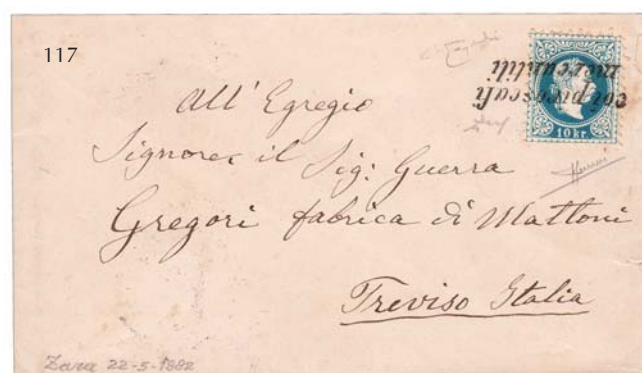 117
coi piroscafi
mercantili
10 kr.
All' Egregio
Signore il Sig: Guerra
Gregori fabrica di Mattoni
Treviso Italia
Zara 22-5-1882